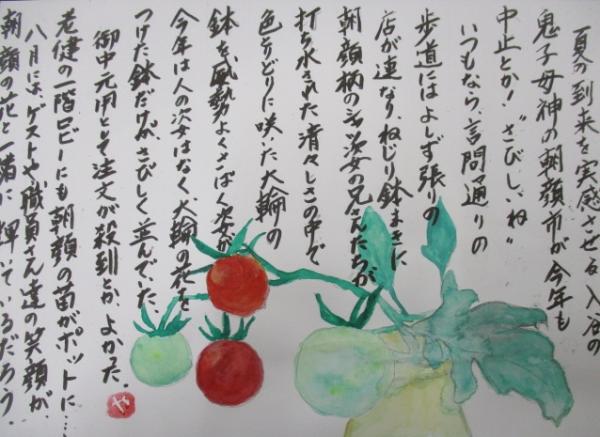 夏の到来を実感させる入谷の
鬼子母神の朝顔市が今年も
中止とか！"さびしいね"
いつもなら、言問通りの
歩道にはよしず張りの
店が連なり、ねじり鉢まきに
朝顔柄のシャツ姿の兄さんたちが
打ち水された清々しさの中で
色とりどりに咲いた大輪の
鉢を、威勢よくさばく姿が
今年は人の姿はなく、大輪の花を
つけた鉢だけが、さびしく並んでいた。
御中元用として注文が殺到とか、よかった。
老健の一階ロビーにも朝顔の苗がポットに…
八月には、ゲストや職員さん達の笑顔が、
朝顔の花と一緒に輝いているだろう。